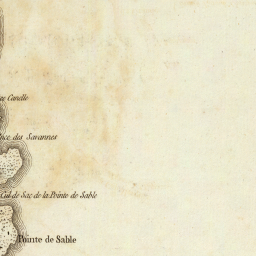 Candle
des Savannes
Cul de Sac de la Pointe de Sable
Pointe de Sable